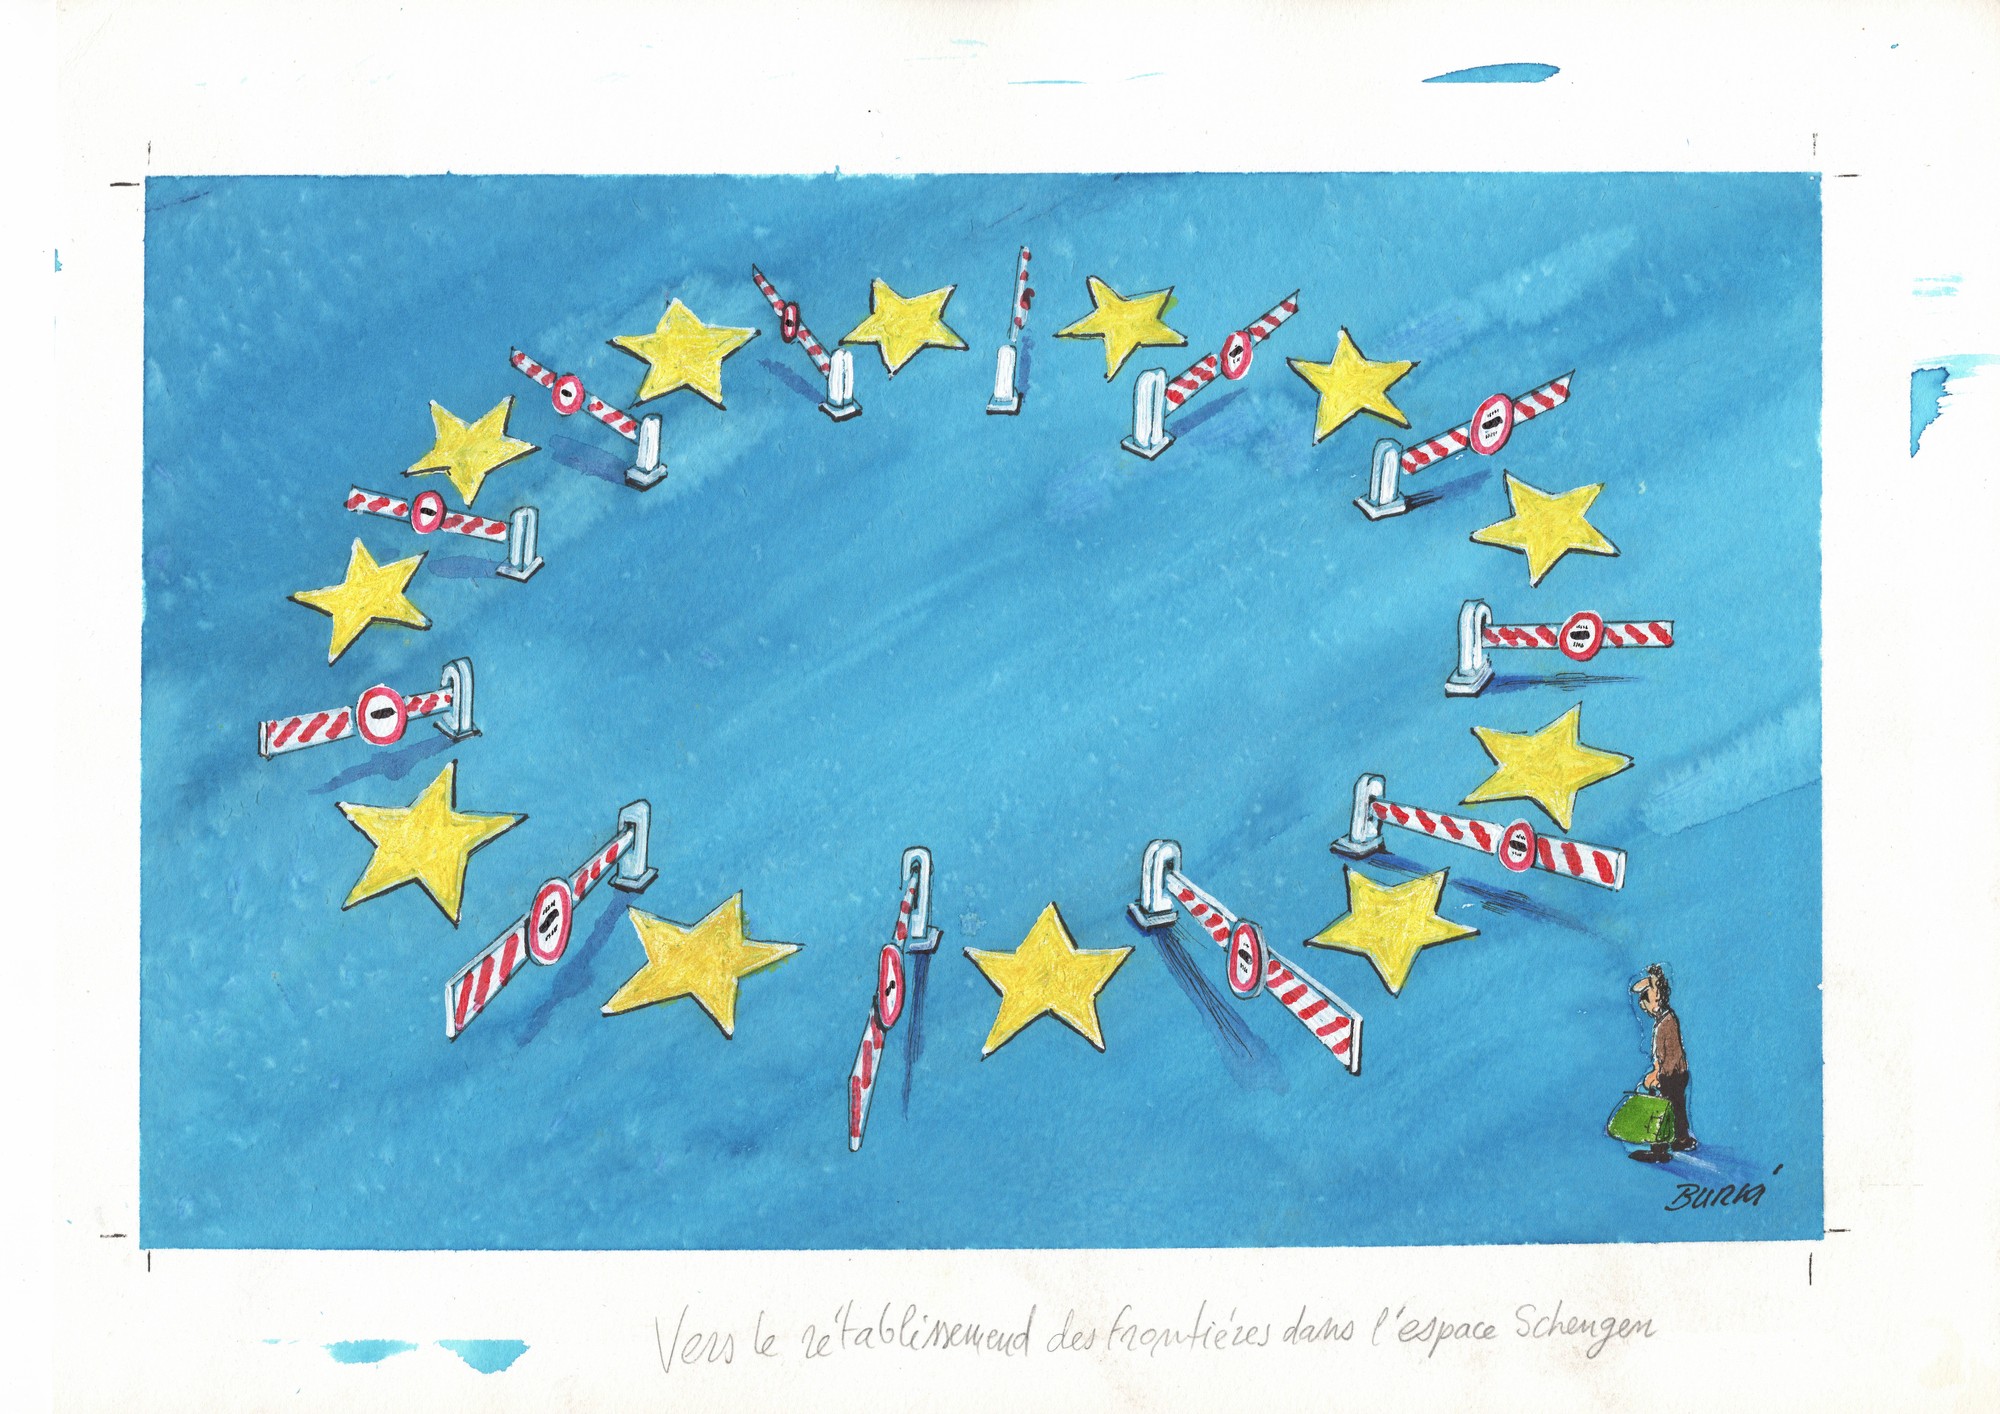 BURKI
Vers le rétablissemend des frontiéres dans l'espace Schengen